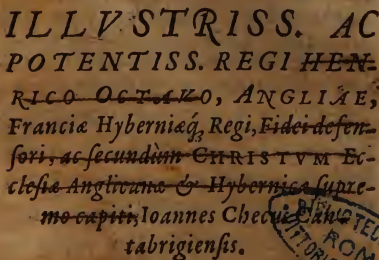 ILLVSTRISS. AC
POTENTISS. REGI HEN-
RICO OCTAVO, ANGLIÆ,
Franciæ Hyberniæq́; Regi, Fidei defen-
sori, ac secundùm CHRISTVM Ec-
clesiæ Anglicanæ & Hybernicæ supre-
mo capiti, Ioannes Checus Can-
tabrigiensis.